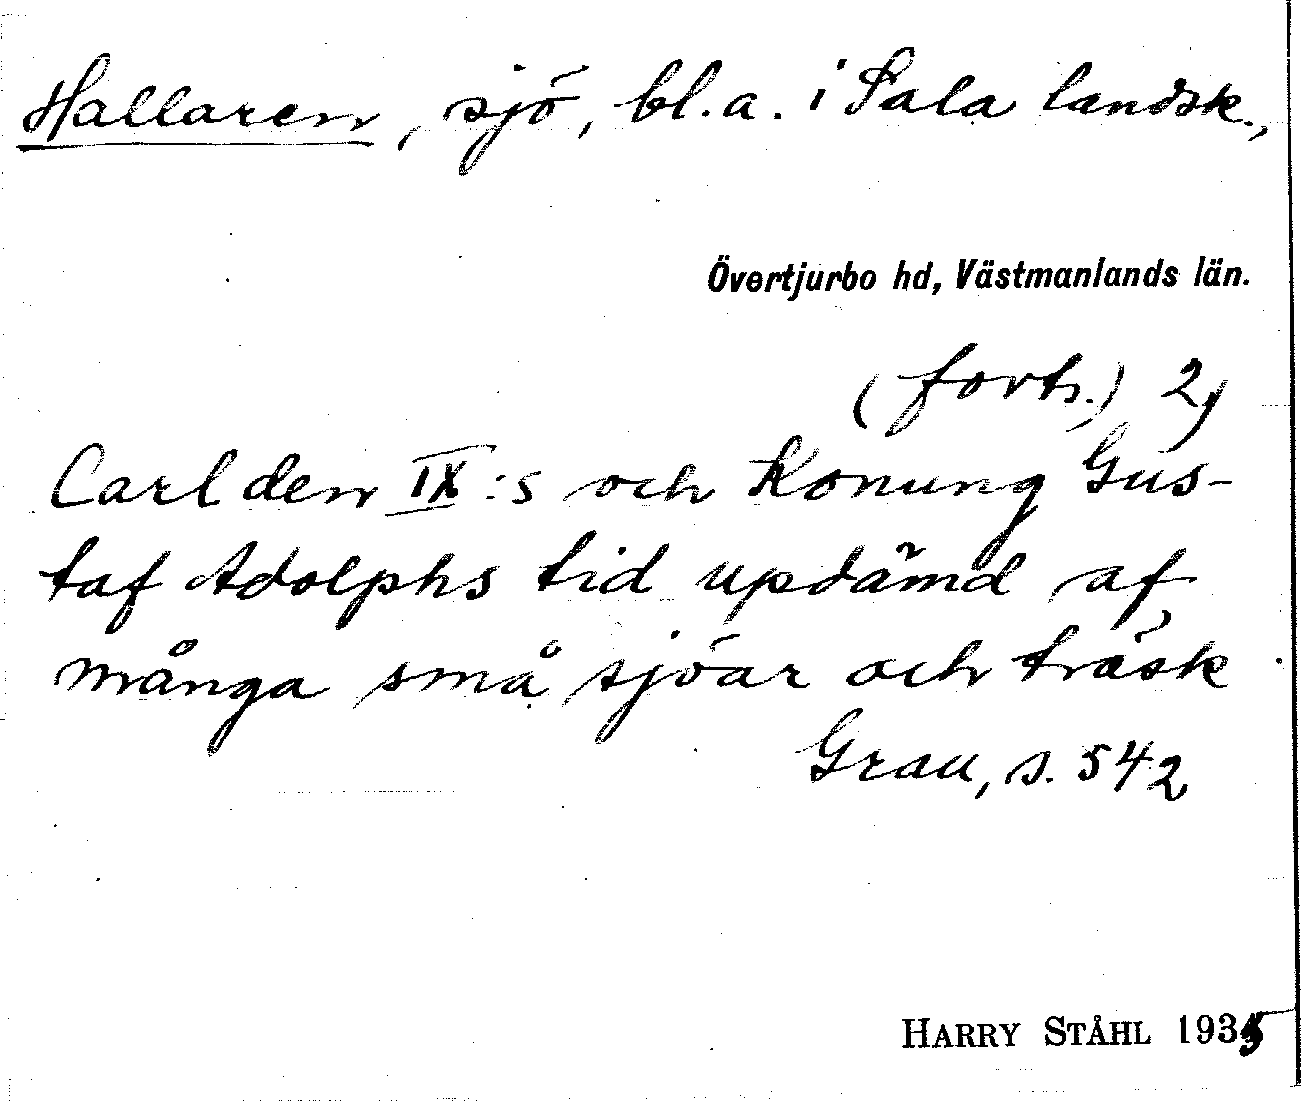 Hallaren, sjö, bl.a. i Sala landsk.,
Övertjurbo hd, Västmanlands län.
(forts.) 2)
Carl den IX:s och Konung Gus-
taf Adolphs tid updämd af
många små sjöar och träsk
Grau, s. 542
HARRY STÅHL 1935